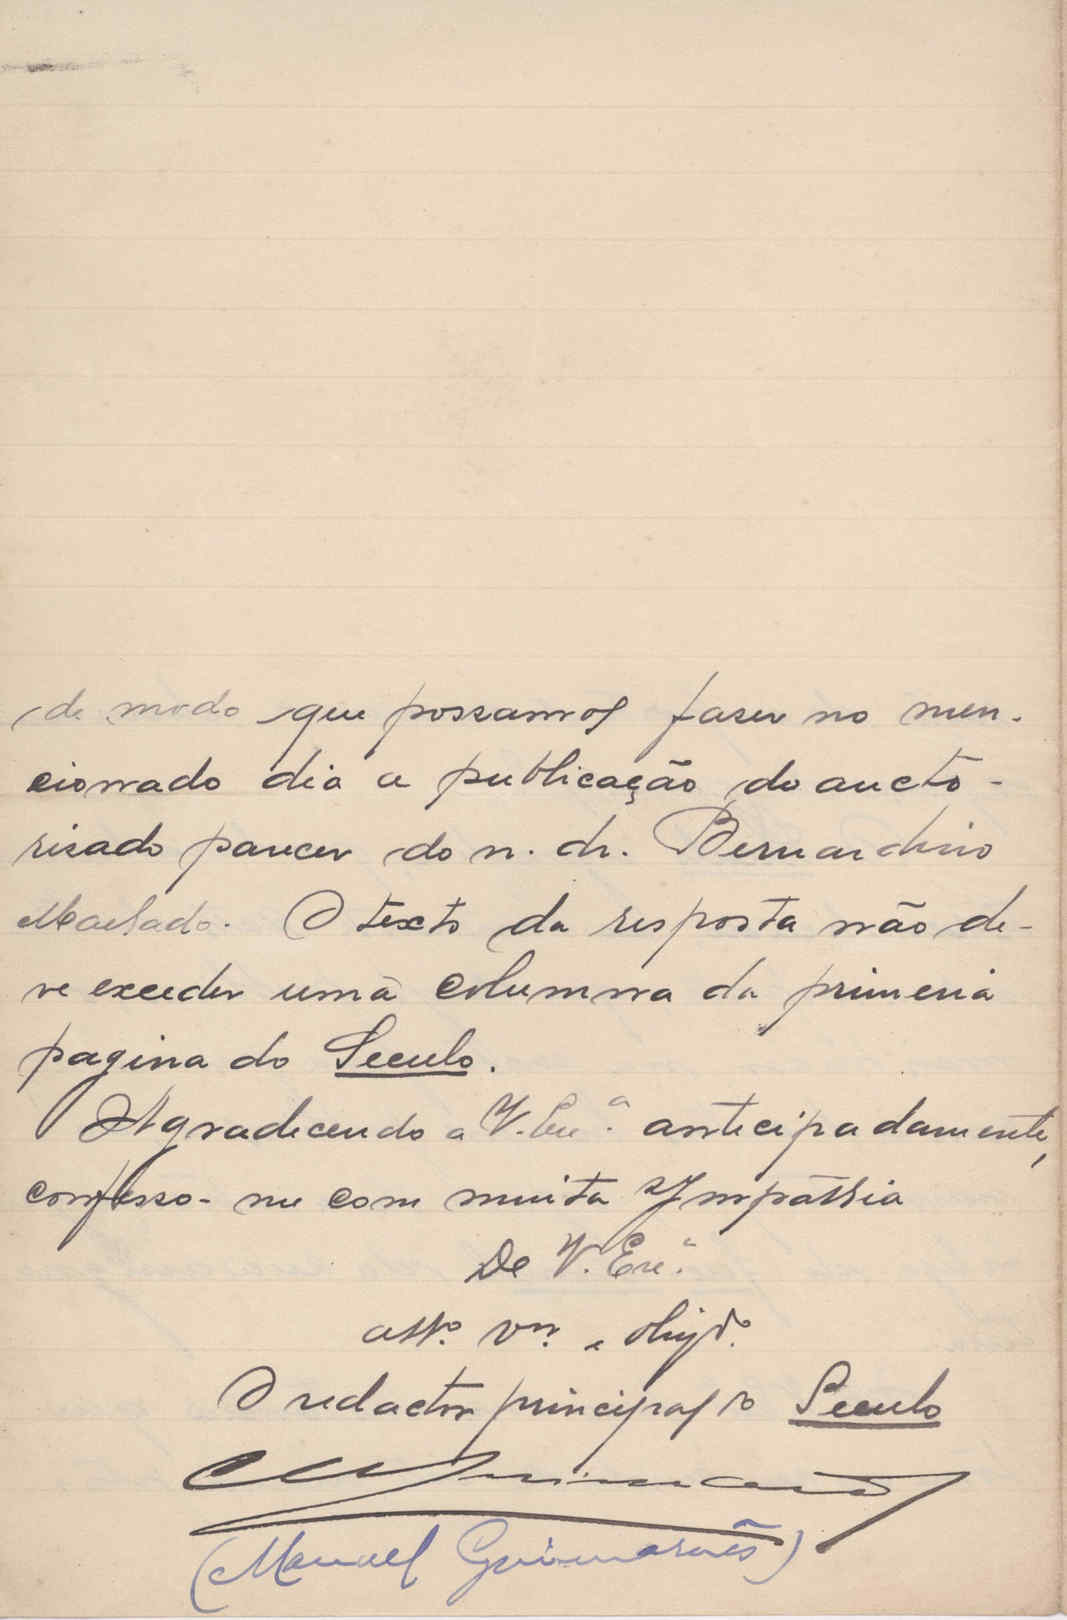 de modo que possamos faser no men-
cionado dia a publicação do aucto-
risado parecer do n. dr. Bernardino
Machado. O texto da resposta não de-
ve exceder uma columna da primeira
pagina do Seculo.
Agradecendo a V. Exc.ª antecipadamente,
confesso-me com muita sympathia
De V. Exc.ª
att.º v.ºr e obrigd.º
O redactor principal do Seculo
M Guimarães
(Manuel Guimarães)